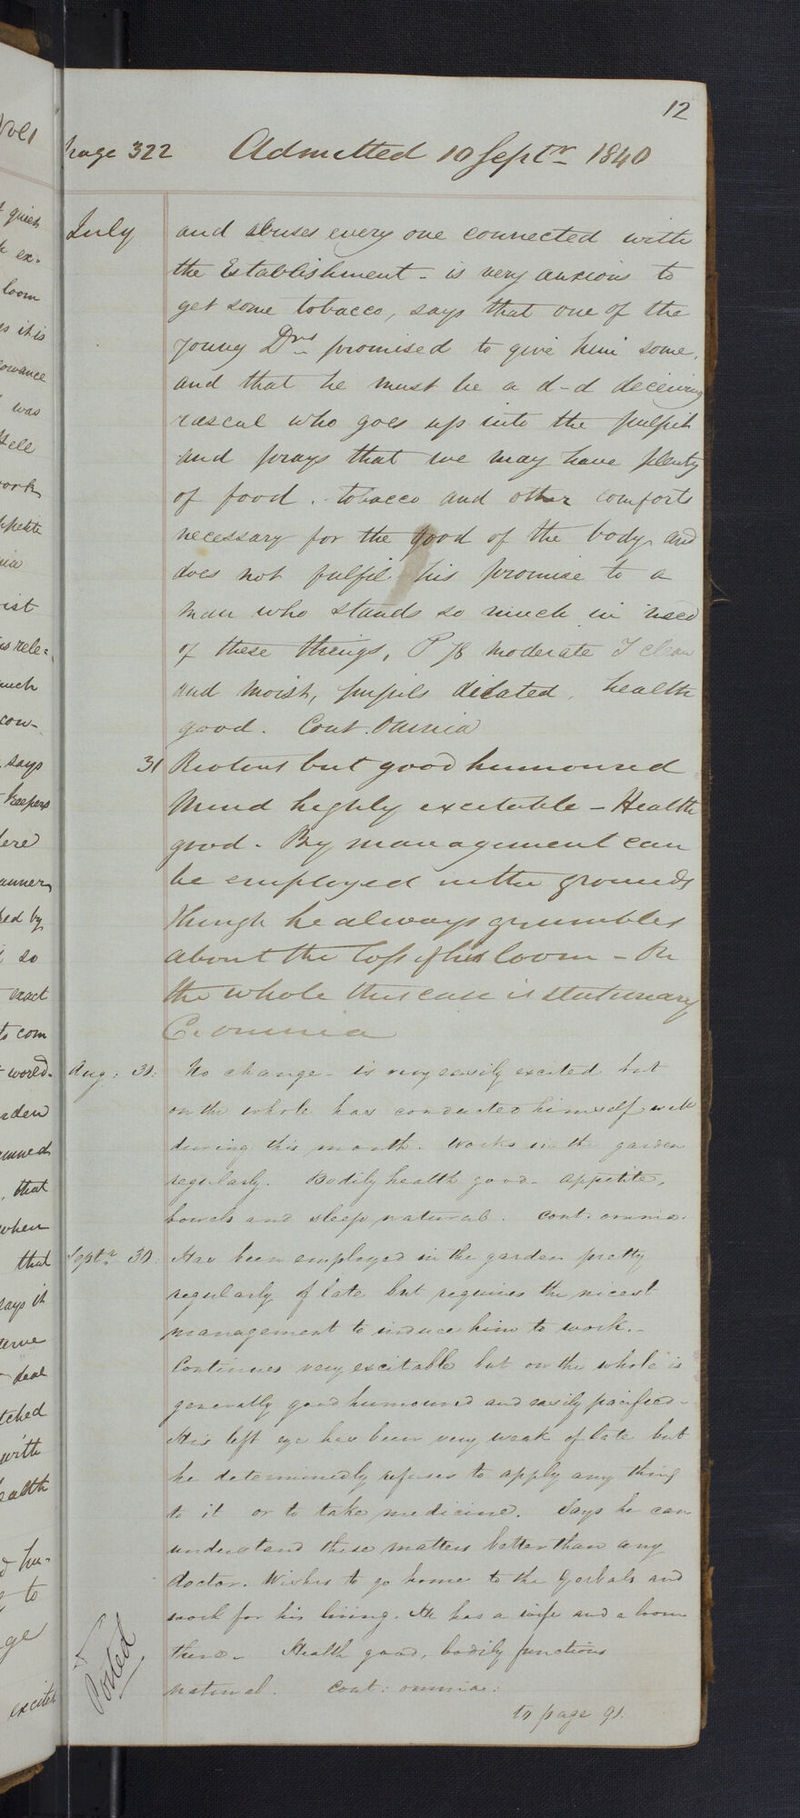 12
page 322 Admitted 10 Septr 1840
July and abuses every one connected with
the Establishment - is very anxious to
get some tobacco, says that one of the
young Drs promised to give him some,
and that he must be a d-d deceiving
rascal who goes up into the pulpit
and prays that we may have plenty
of food, tobacco and other comforts
necessary for the good of the body and
does not fulfil his promise to a
man who stands so much in need
of these things, P 78 moderate T clean
and moist, pupils dilated, health
good. Cont. Omnia
31 Riotous but good humoured
Mind highly excitable - Health
good - By management can
be employed in the grounds
though he always grumbles
about the loss of his loom - On
the whole this case is stationary
C. omnia
Aug: 31: No change - is very easily excited but
on the whole has conducted himself well
during this month. Works in the garden
regularly. Bodily health good - appetite,
bowels and sleep natural. Cont: omnia.
Septr 30: Has been employed in the garden pretty
regularly of late but requires the nicest
management to induce him to work. -
Continues very excitable but on the whole is
generally good humoured and easily pacified -
His left eye has been very weak of late but
he determinedly refuses to apply any thing
to it or to take medicine. Says he can
understand these matters better than any
doctor. Wishes to go home to the Gorbals and
work for his living. He has a wife and a loom
there - Health good, bodily functions
natural. Cont: omnia:
to page 91.
Posted
quiet
ex-
loom
is it is
owance
was
ppetite
ist
rele-
much
con-
says
keepers
ed by
so
exact
com
world-
that
when
that
says it
with
to
excited